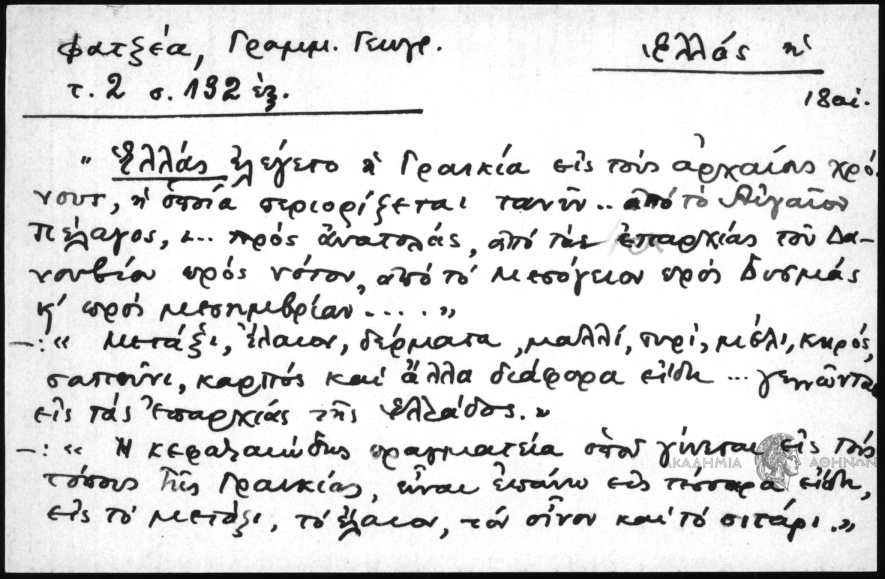 Φατζέα, Γραμμ. Γεωγρ.
τ. 2 σ. 192 ἑξ.
Ἑλλάς ἡ
18 αἰ.
"Ἑλλάς ἐλέγετο ἡ Γραικία εἰς τούς ἀρχαίους χρό-
νους, ἡ ὁποία περιορίζεται τανῦν .. ἀπό τό Αἰγαῖον
Πέλαγος, ... πρός ἀνατολάς, ἀπό τάς ἐπαρχίας τοῦ Δα-
νουβίου πρός νότον, ἀπό τό Μεσόγειον πρός δυσμάς
κ' πρός μεσημβρίαν ....."
—: « Μετάξι, ἔλαιον, δέρματα, μαλλί, τυρί, μέλι, κηρός,
σαποῦνι, καρπός καί ἄλλα διάφορα εἴδη ... γεννῶνται
εἰς τάς ἐπαρχίας τῆς Ἑλλάδος.»
—: « Ἡ κεφαλαιώδης πραγματεία ὁποῦ γίνεται εἰς τούς
τόπους τῆς Γραικίας, εἶναι ἐπάνω εἰς τέσσαρα εἴδη,
εἰς τό μετάξι, τό ἔλαιον, τόν οἶνον καί τό σιτάρι.»
ΑΚΑΔΗΜΙΑ ΑΘΗΝΩΝ